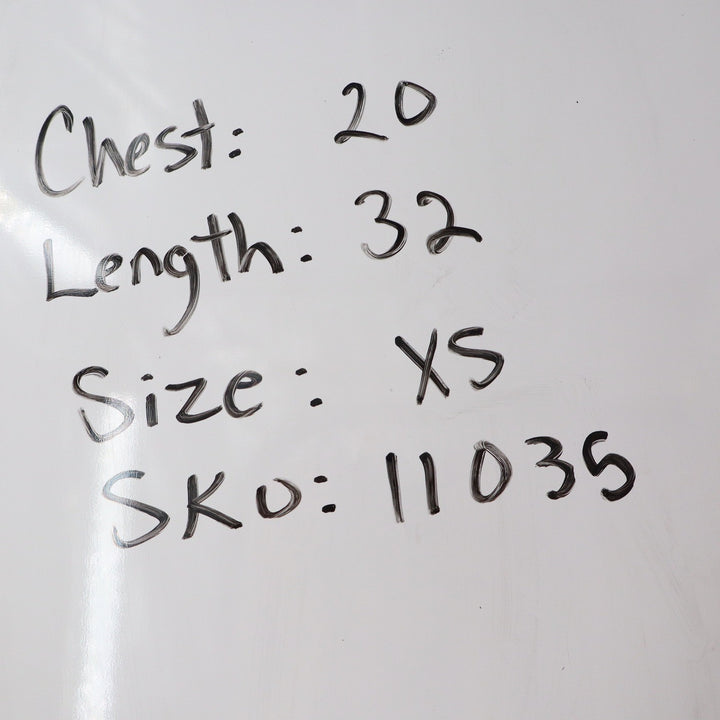 Chest: 20
Length: 32
Size: XS
SKU: 11035